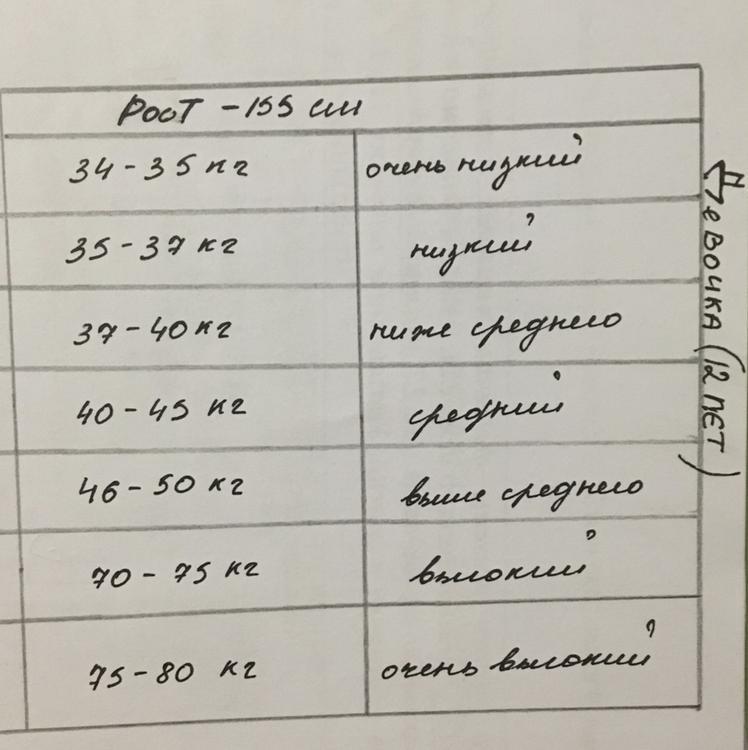 РОСТ - 155 см
34 - 35 кг очень низкий
35 - 37 кг низкий
37 - 40 кг ниже среднего
40 - 45 кг средний
46 - 50 кг выше среднего
70 - 75 кг высокий
75 - 80 кг очень высокий
ДЕВОЧКА (12 ЛЕТ)